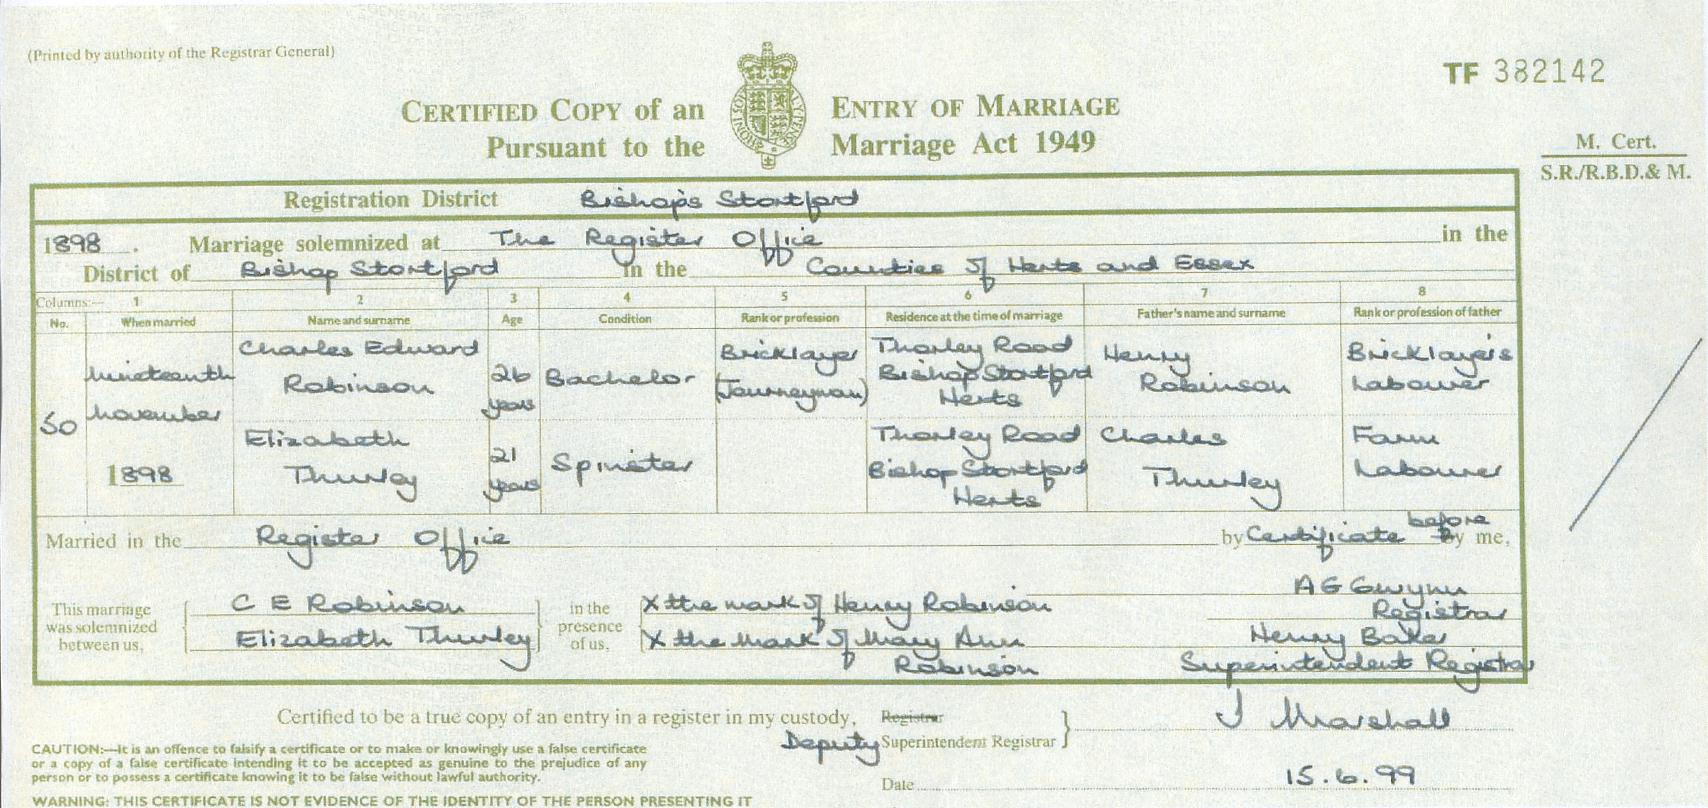 (Printed by authority of the Registrar General)
TF 382142
CERTIFIED COPY of an ENTRY OF MARRIAGE
Pursuant to the Marriage Act 1949
M. Cert.
S.R./R.B.D.& M.
Registration District Bishop's Stortford
1898. Marriage solemnized at The Register Office in the
District of Bishop Stortford in the Counties of Herts and Essex
Columns:— 1 2 3 4 5 6 7 8
No. When married Name and surname Age Condition Rank or profession Residence at the time of marriage Father's name and surname Rank or profession of father
50 Nineteenth November 1898
Charles Edward Robinson 26 years Bachelor Bricklayer (Journeyman) Thorley Road Bishop Stortford Herts Henry Robinson Bricklayer's Labourer
Elizabeth Thurley 21 years Spinster Thorley Road Bishop Stortford Herts Charles Thurley Farm Labourer
Married in the Register Office by Certificate before by me,
This marriage was solemnized between us,
C E Robinson
Elizabeth Thurley
in the presence of us,
X the mark of Henry Robinson
X the mark of Mary Ann Robinson
A G Gwynn
Registrar
Henry Baker
Superintendent Registrar
Certified to be a true copy of an entry in a register in my custody,
Registrar
Deputy Superintendent Registrar
J Marshall
Date 15.6.99
CAUTION:—It is an offence to falsify a certificate or to make or knowingly use a false certificate
or a copy of a false certificate intending it to be accepted as genuine to the prejudice of any
person or to possess a certificate knowing it to be false without lawful authority.
WARNING: THIS CERTIFICATE IS NOT EVIDENCE OF THE IDENTITY OF THE PERSON PRESENTING IT